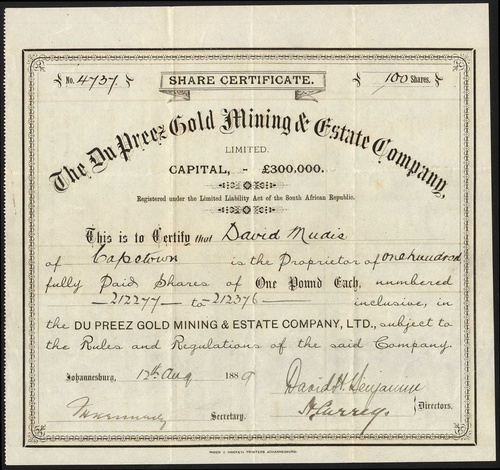 No. 4737. SHARE CERTIFICATE. 100 Shares.
The Du Preez Gold Mining & Estate Company,
LIMITED.
CAPITAL, - £300,000.
Registered under the Limited Liability Act of the South African Republic.
This is to Certify that David Mudie
of Capetown is the Proprietor of one hundred
fully Paid Shares of One Pound Each, numbered
212277 to 212376 inclusive, in
the DU PREEZ GOLD MINING & ESTATE COMPANY, LTD., subject to
the Rules and Regulations of the said Company.
Johannesburg, 12th Aug 1889
David H. Benjamin
H Currey. Directors.
Secretary.
PRINTERS JOHANNESBURG